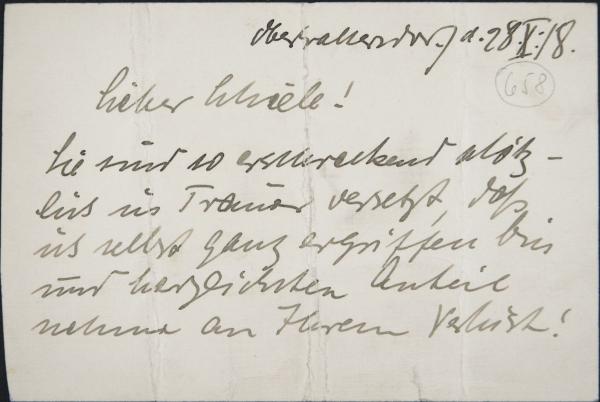 Oberwaltersdorf d. 28.X.18.
658
Lieber Schiele!
Sie sind so erschreckend plötz-
lich in Trauer versetzt, daß
ich selbst ganz ergriffen bin
und herzlichsten Anteil
nehme an Ihrem Verlust!